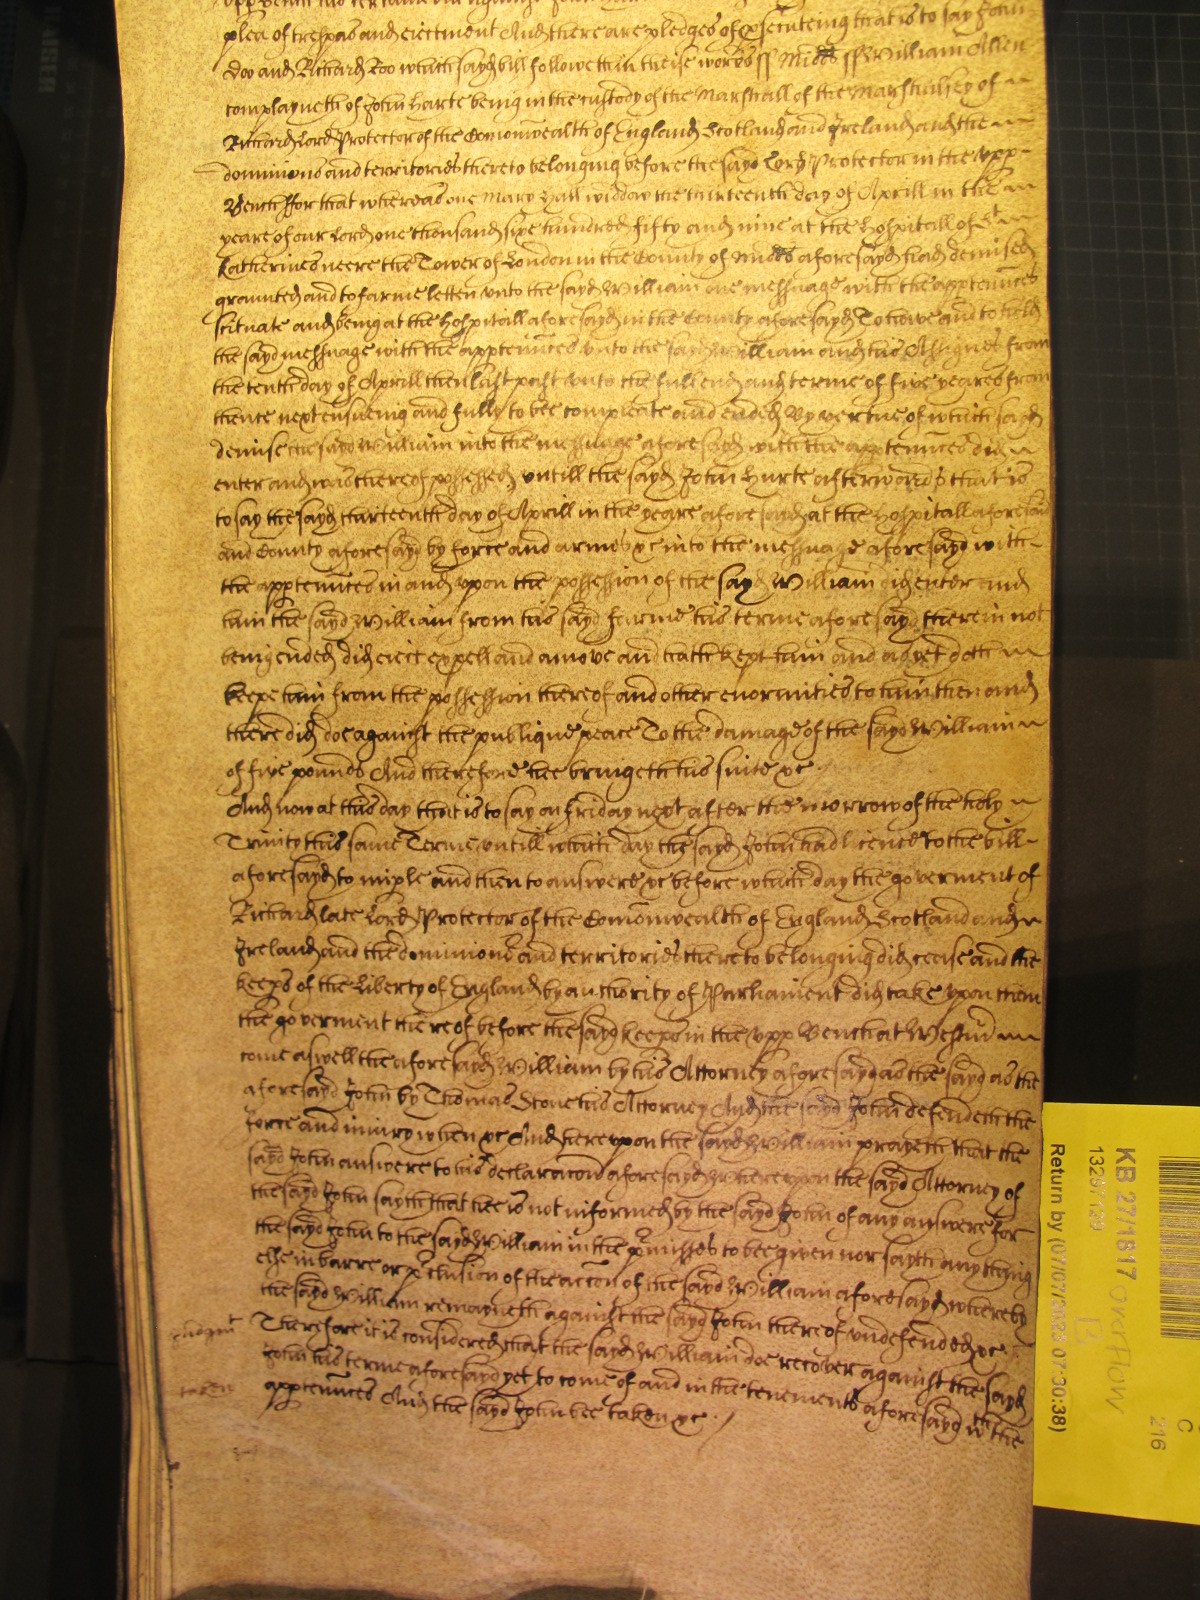 upp Bench his certaine bill against John
plea of trespas and eiectment And there are pledges of prosecuteing that is to say John
Doo and Richard Roo which sayd bill followeth in theise words ss Midds ss William Allen
complayneth of John Harte being in the custody of the Marshall of the Marshalsey of
Richard Lord Protector of the Comonwealth of England Scotland and Ireland and the
dominions and territories thereto belonging before the sayd Lord Protector in the upp
Bench ffor that whereas one Mary Hall widdow the thirteenth day of Aprill in the
yeare of our Lord one thousand sixe hundred fifty and nine at the Hospitall of St
Katherines neere the Tower of London in the County of Midds aforesayd had demised
graunted and to farme letten unto the sayd William one messuage with the apptennces
scituate and being at the Hospitall aforesayd in the County aforesayd To have and to hold
the sayd messuage with the apptennces unto the sayd William and his Assignes from
the tenth day of Aprill then last past unto the full end and terme of five yeares from
thence next ensueing and fully to bee compleate and ended By vertue of which sayd
demise the sayd William into the messuage aforesayd with the apptennces did
enter and was thereof possessed, untill the sayd John Harte afterwards that is
to say the sayd thirteenth day of Aprill in the yeare aforesaid at the Hospitall aforesaid
and County aforesayd by force and armes &c into the messuage aforesayd with
the apptennces in and upon the possession of the sayd William did enter and
him the sayd William from his sayd farme his terme aforesayd therein not
being ended did eiect expell and amove and hath kept him and as yet doth
keepe him from the possession thereof and other enormities to him then and
there did doe against the publique peace To the damage of the sayd William
of five pounds And therefore hee bringeth his suite &c
And now at this day that is to say on Friday next after the morrow of the holy
Trinity this same Terme untill which day the sayd John had licence to the bill
aforesayd to imple and then to answere &c before which day the goverment of
Richard late Lord Protector of the Comonwealth of England Scotland and
Ireland and the dominions and territories thereto belonging did cease and the
keeps of the Liberty of England by authority of Parliament did take upon them
the goverment thereof before the sayd keeps in the upp Bench at Westm
come aswell the aforesayd William by his Attorney aforesayd as the sayd as the
aforesayd John by Thomas Stone his Attorney And the sayd John defendeth the
force and iniury when &c And hereupon the sayd William prayeth that the
sayd John answere to his declaracon aforesayd Whereupon the sayd Attorney of
the sayd John sayth that hee is not informed by the sayd John of any answere for
the sayd John to the sayd William in the pmisses to bee given nor sayth any thing
else in barre or pclusion of the accon of the sayd William aforesayd whereby
the sayd William remayneth against the sayd John thereof undefended &c
Judgmt Therefore it is considered that the sayd William doe recover against the sayd
John his terme aforesayd yet to come of and in the tenements aforesayd wth the
taken apptennces And the sayd John bee taken &c
KB 27/1817 overflow
13297129
Return by (07/07/2023 07:30:38)
C
216